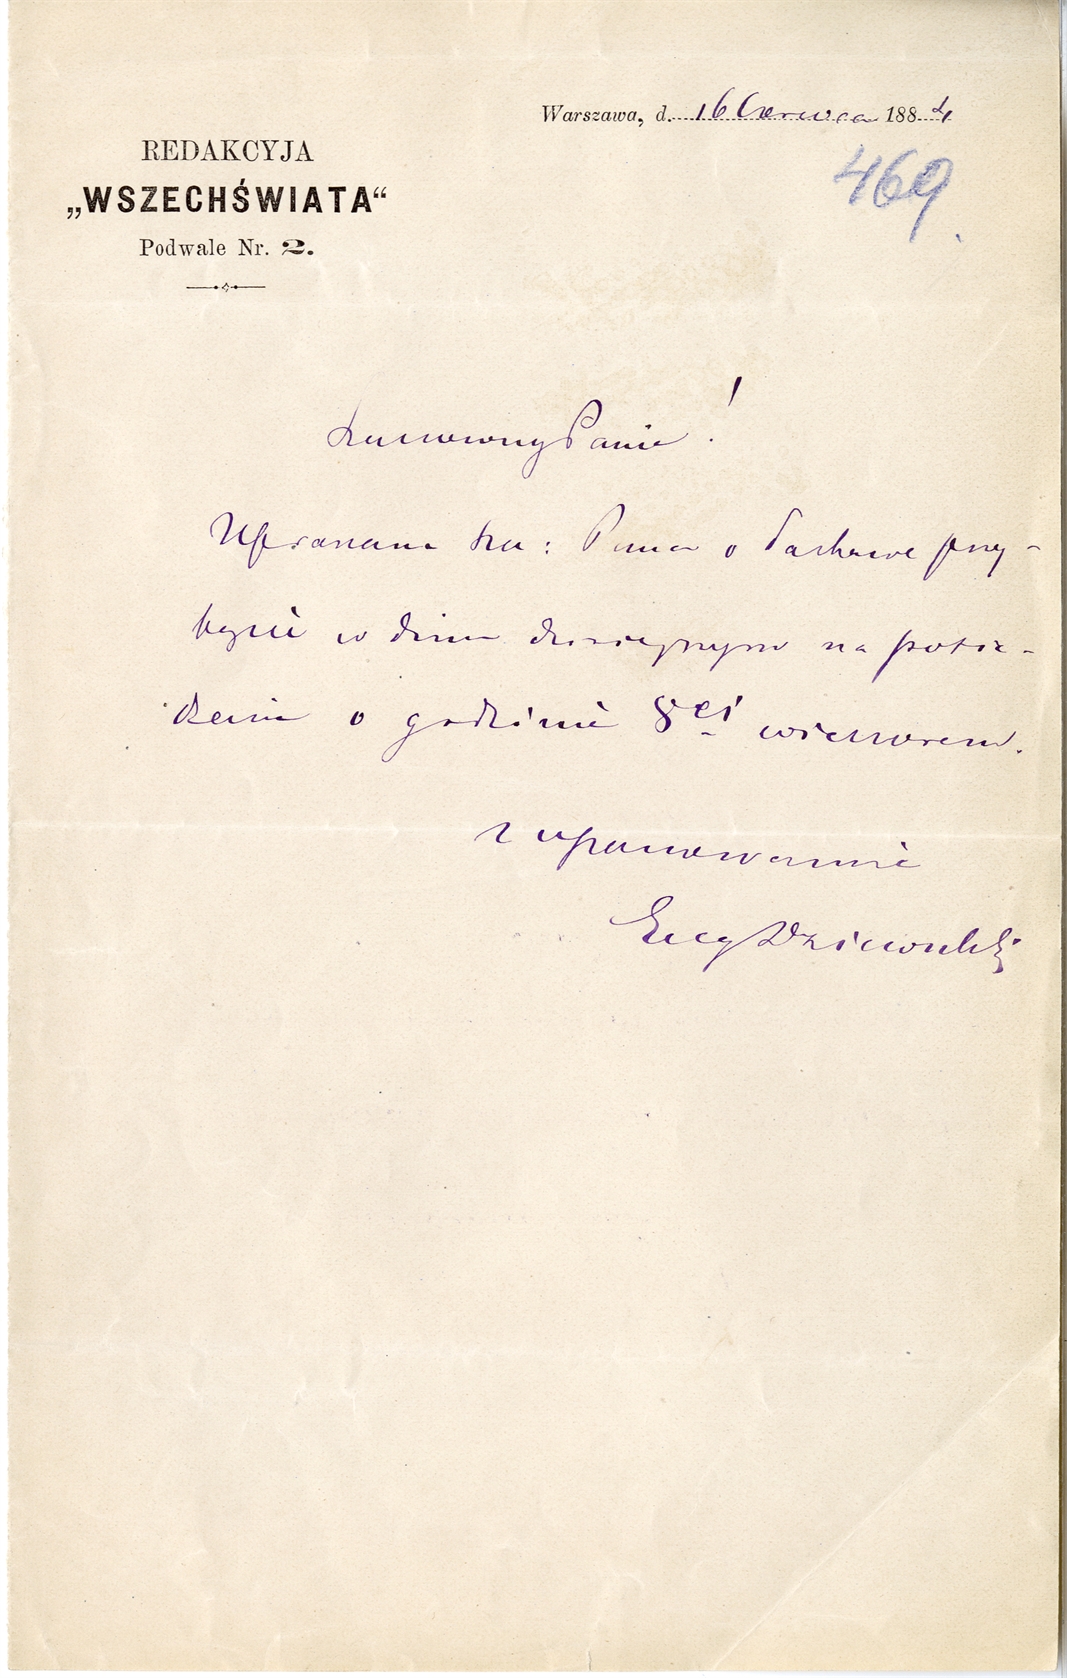 Warszawa, d. 16 Czerwca 1884
469.
REDAKCYJA
„WSZECHŚWIATA“
Podwale Nr. 2.
Szanowny Panie!
Upraszam Sza: Pana o łaskawe przy-
bycie w dniu dzisiejszym na posie-
dzenie o godzinie 8ej wieczorem.
z uposzanowaniem
Eug Dziewulski